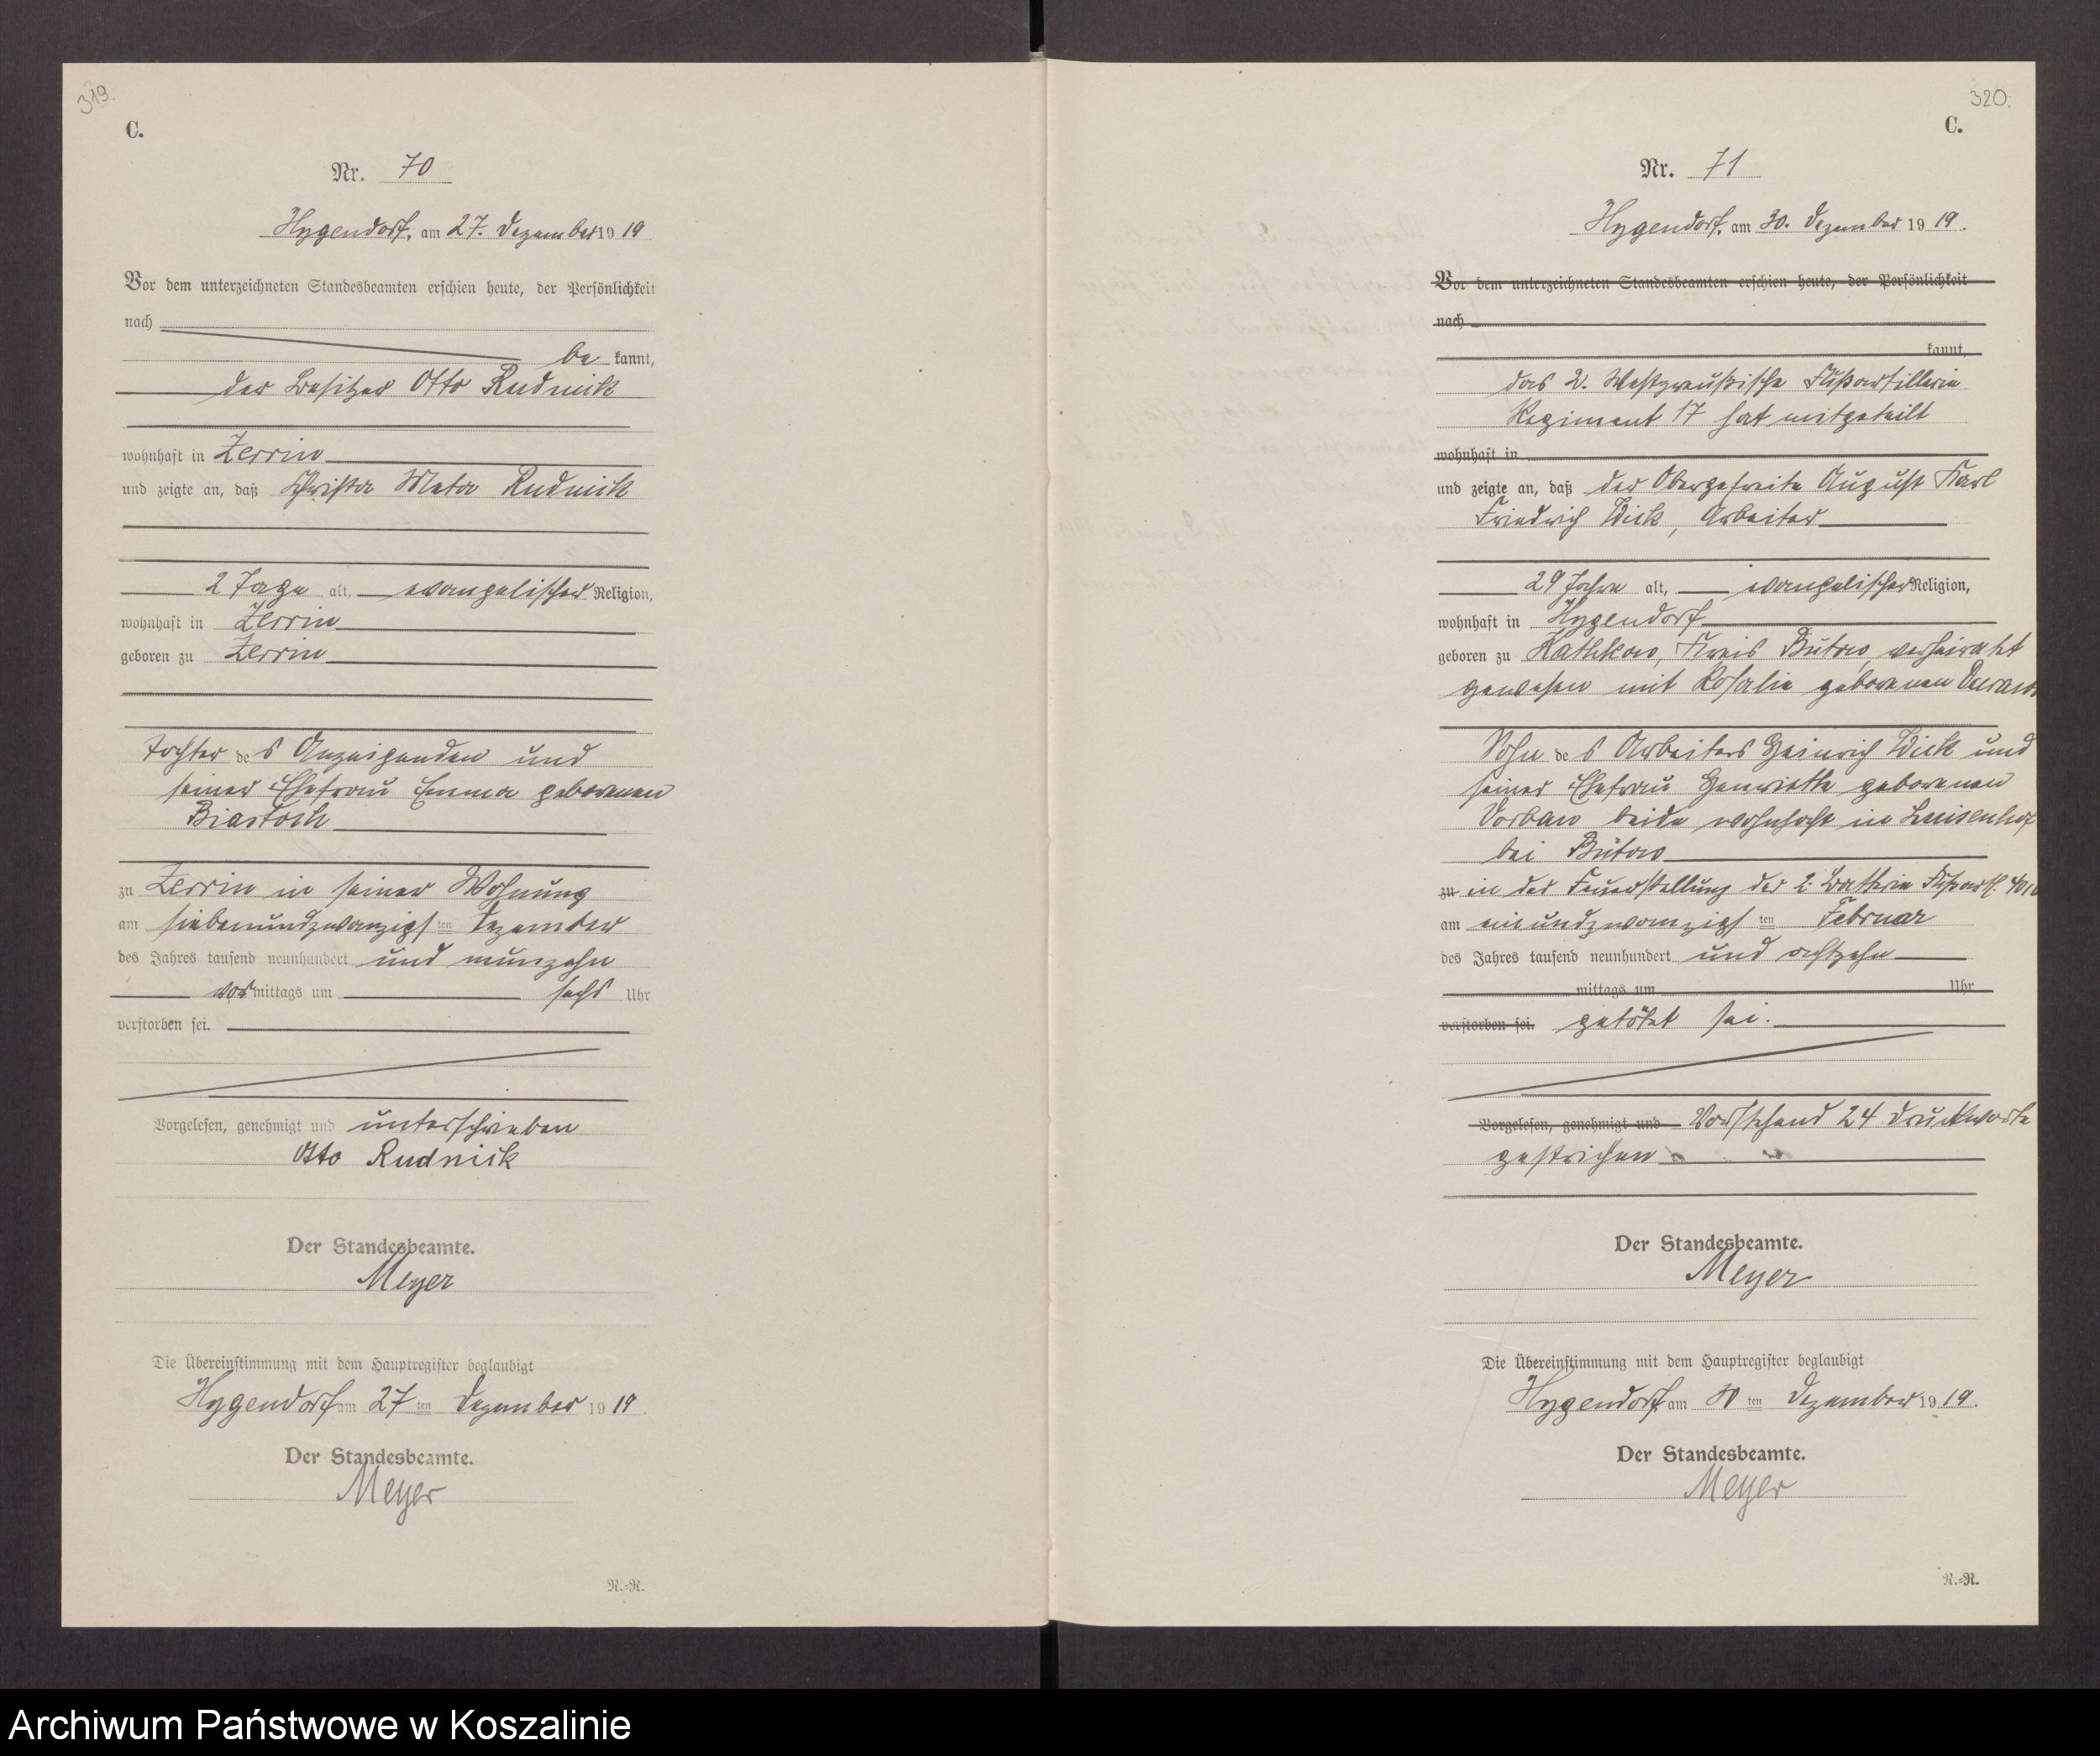 319.
C.
Nr. 70
Hygendorf, am 27. Dezember 1919
Vor dem unterzeichneten Standesbeamten erschien heute, der Persönlichkeit
nach
be kannt,
der Besitzer Otto Rudnick
wohnhaft in Zerrin
und zeigte an, daß Christa Meta Rudnick
2 Tage alt, evangelischer Religion,
wohnhaft in Zerrin
geboren zu Zerrin
Tochter des Anzeigenden und
seiner Ehefrau Emma geborenen
Biastoch
zu Zerrin in seiner Wohnung
am siebenundzwanzigsten Dezember
des Jahres tausend neunhundert und neunzehn
vormittags um sechs Uhr
verstorben sei.
Vorgelesen, genehmigt und unterschrieben
Otto Rudnick
Der Standesbeamte.
Meyer
Die Übereinstimmung mit dem Hauptregister beglaubigt
Hygendorf am 27ten Dezember 1919.
Der Standesbeamte.
Meyer
R.=R.
320.
C.
Nr. 71
Hygendorf, am 30. Dezember 1919.
Vor dem unterzeichneten Standesbeamten erschien heute, der Persönlichkeit
nach
kannt,
das 2. Westpreußische Fußartillerie
Regiment 17 hat mitgeteilt
wohnhaft in
und zeigte an, daß der Obergefreite August Karl
Friedrich Dick, Arbeiter
29 Jahre alt, evangelischer Religion,
wohnhaft in Hygendorf
geboren zu Kathkow, Kreis Bütow, verheiratet
gewesen mit Rosalie geborenen
Sohn des Arbeiters Heinrich Dick und
seiner Ehefrau Henriette geborenen
Vorbau beide wohnhaft in Luisenhof
bei Bütow
zu in der Feuerstellung der 2. Batterie Fußart.
am einundzwanzigsten Februar
des Jahres tausend neunhundert und achtzehn
mittags um Uhr
verstorben sei. getötet sei.
Vorgelesen, genehmigt und Vorstehend 24 Druckworte
gestrichen
Der Standesbeamte.
Meyer
Die Übereinstimmung mit dem Hauptregister beglaubigt
Hygendorf, am 30ten Dezember 1919.
Der Standesbeamte.
Meyer
R.=R.
Archiwum Państwowe w Koszalinie